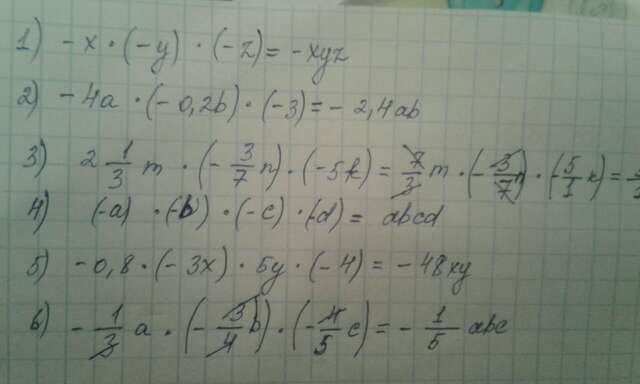 1) -x · (-y) · (-z) = -xyz
2) -4a · (-0,2b) · (-3) = -2,4ab
3) 2 1/3 m · (- 3/7 n) · (-5k) = 7/3 m · (- 3/7 n) · (- 5/1 k) =
4) (-a) · (-b) · (-c) · (-d) = abcd
5) -0,8 · (-3x) · 5y · (-4) = -48xy
6) - 1/3 a · (- 3/4 b) · (- 4/5 c) = - 1/5 abc